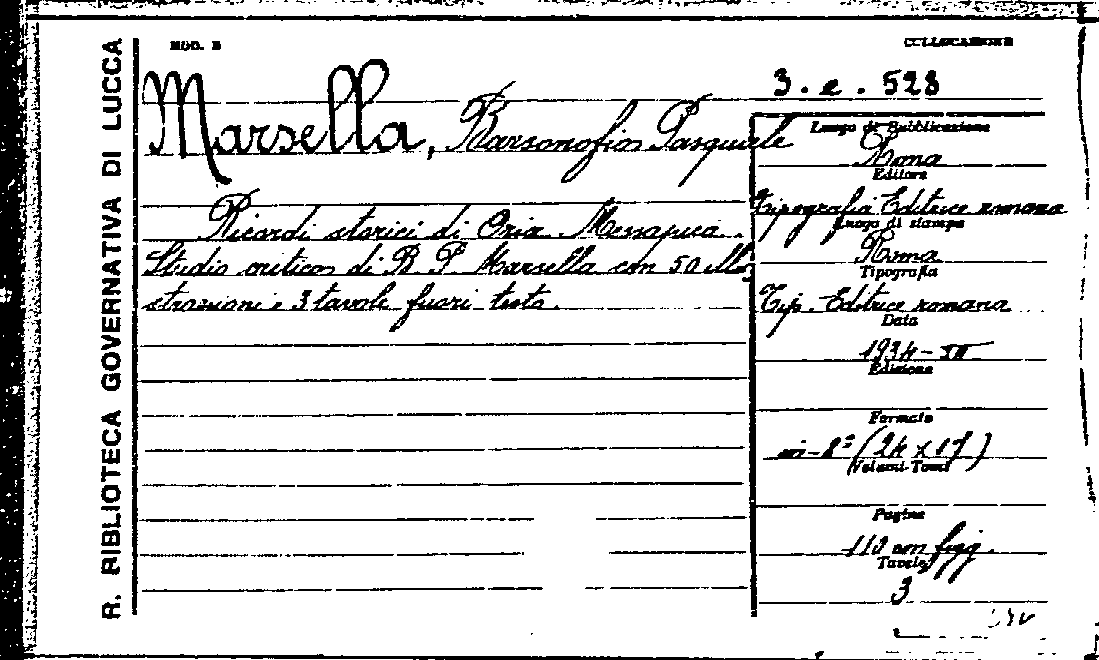 R. BIBLIOTECA GOVERNATIVA DI LUCCA
MOD. B
COLLOCAZIONE
3. e. 528
Marsella, Barsonofio Pasquale
Ricordi storici di Oria Messapica.
Studio critico di B P Marsella con 50 illu
strazioni e 3 tavole fuori testo.
Luogo di Pubblicazione
Roma
Editore
Tipografia Editrice romana
Luogo di stampa
Roma
Tipografia
Tip. Editrice romana
Data
1934-XII
Edizione
Formato
in-8° (24 x 17)
Volumi-Tomi
Pagine
110 con figg.
Tavole
3